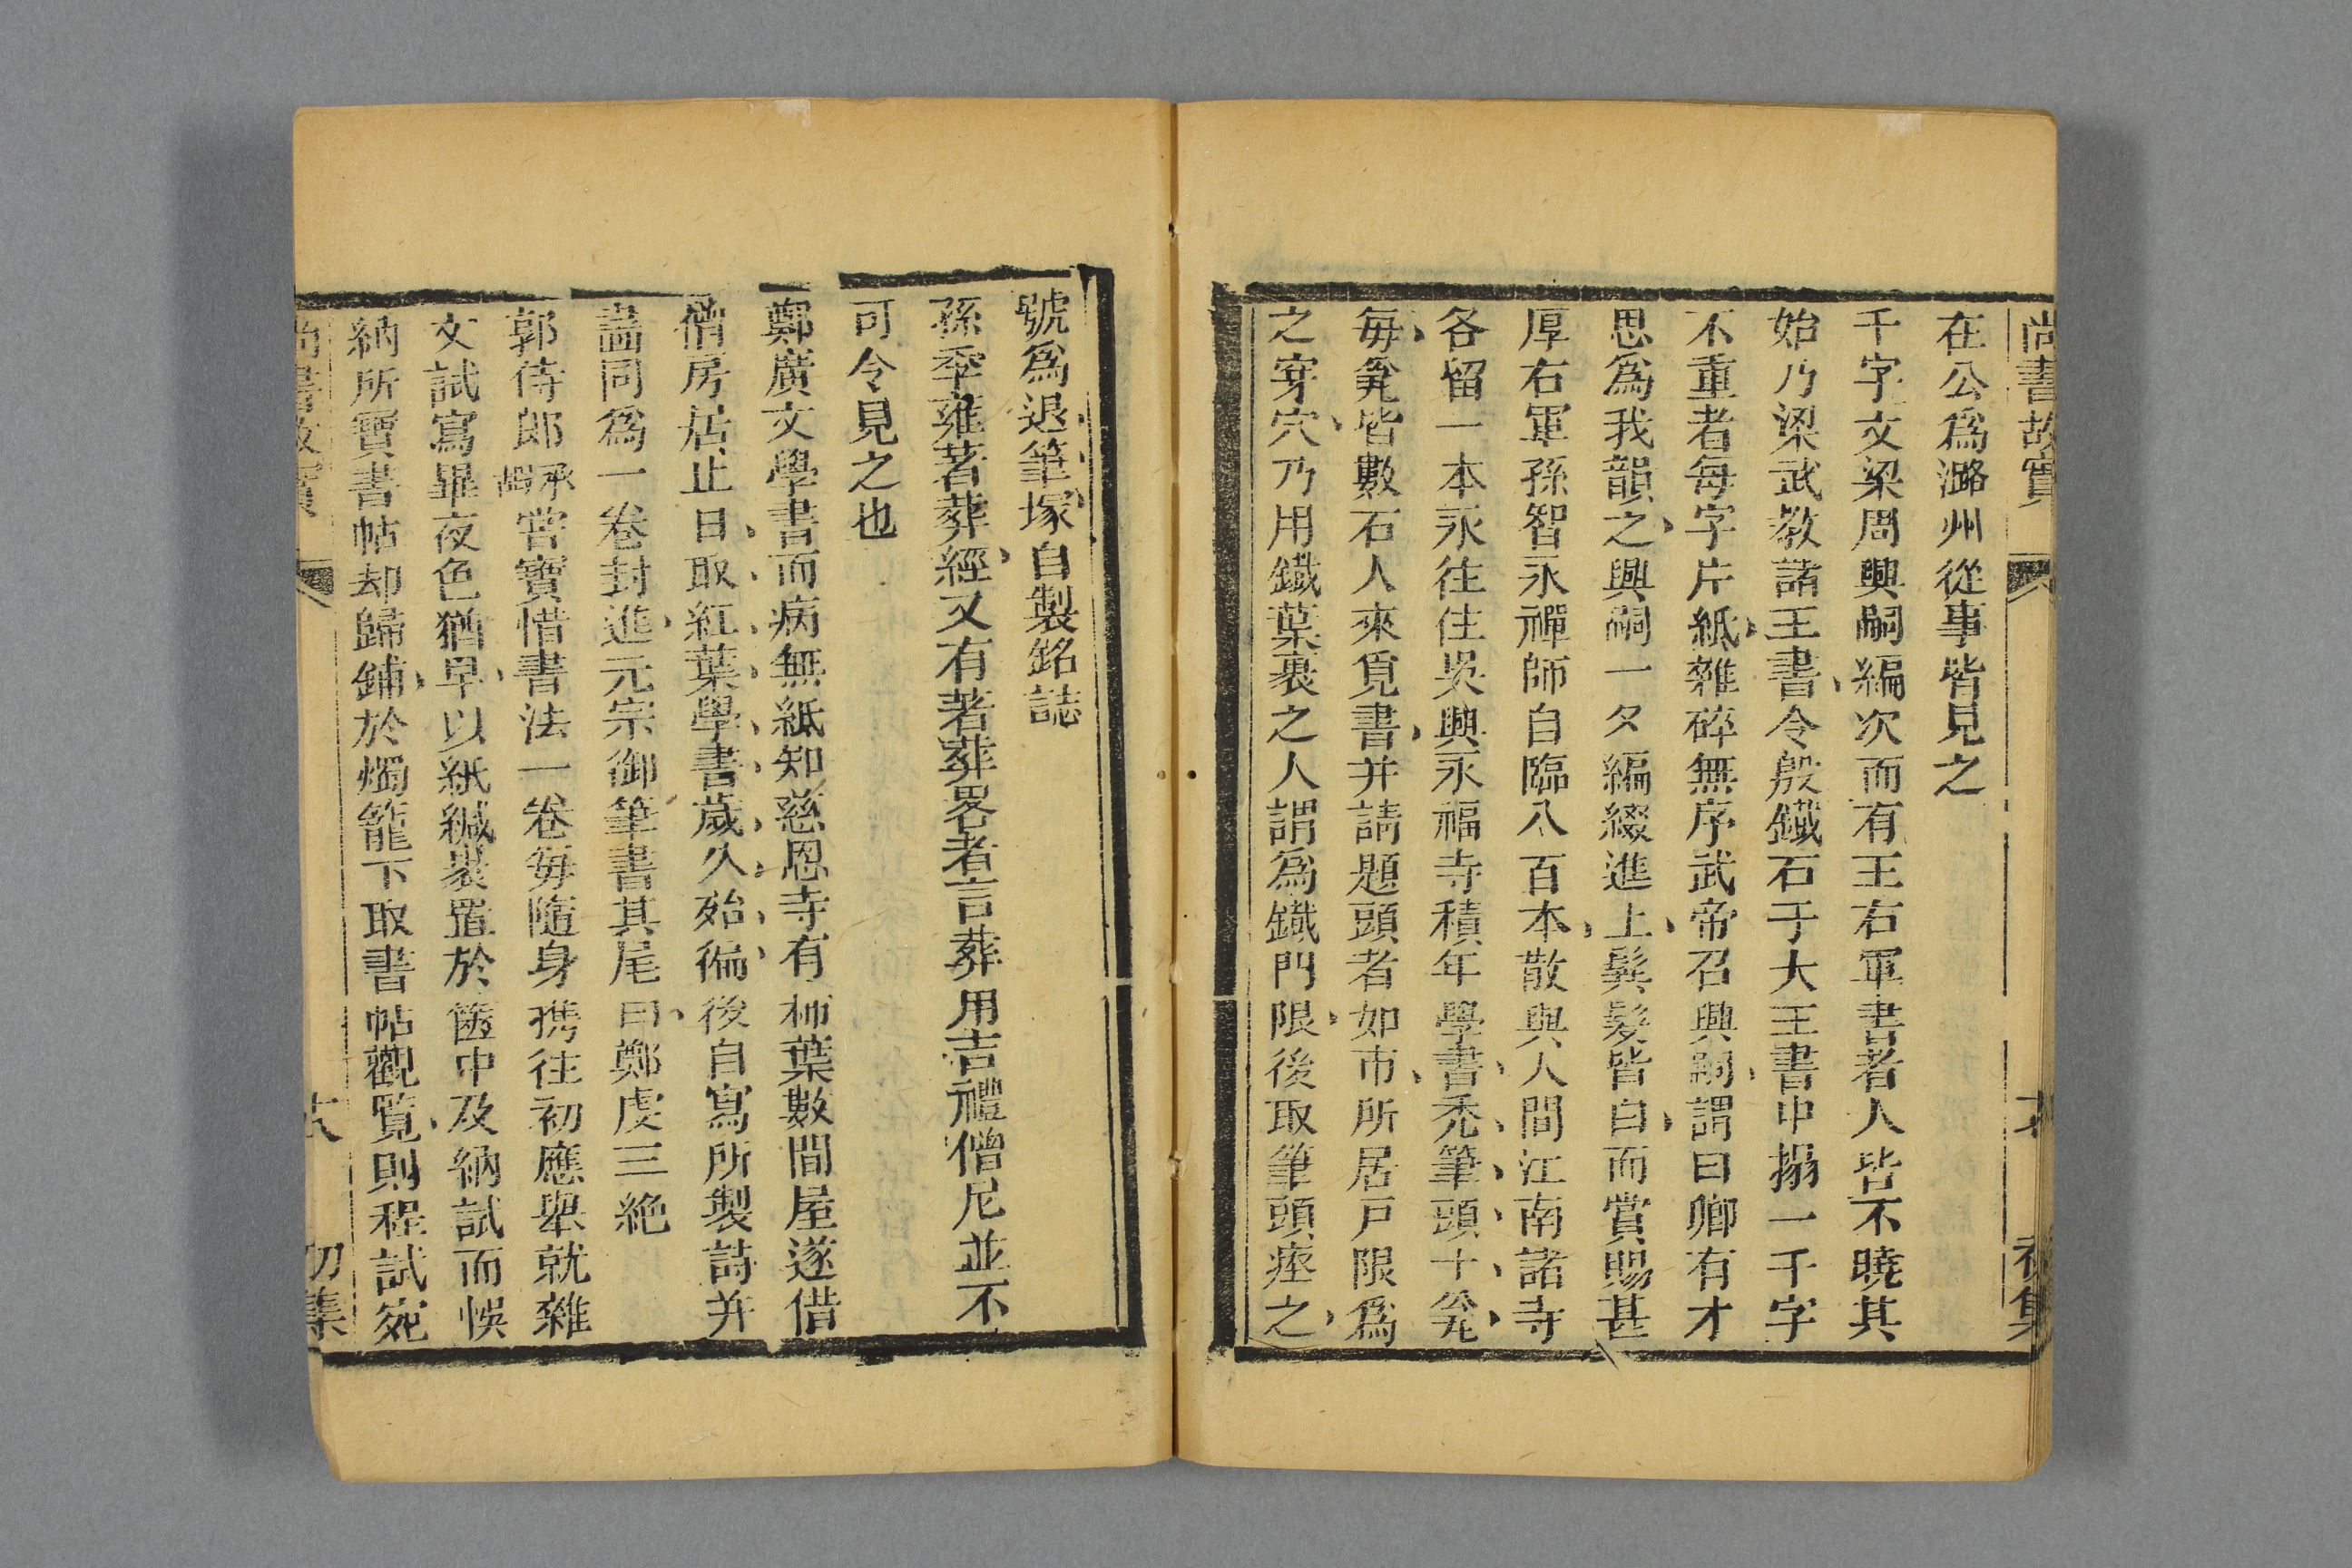 尚書故實
初集
在公爲潞州從事皆見之
千字文梁周興嗣編次而有王右軍書者人皆不曉其
始乃梁武教諸王書令殷鐵石于大王書中搨一千字
不重者每字片紙雜碎無序武帝召興嗣謂曰卿有才
思爲我韻之興嗣一夕編綴進上鬂髮皆白而賞賜甚
厚右軍孫智永禪師自臨八百本散與人間江南諸寺
各留一本永往住吳興永福寺積年學書禿筆頭十瓮
每瓮皆數石人來覓書并請題頭者如市所居戸限爲
之穿穴乃用鐵葉裹之人謂爲鐵門限後取筆頭瘞之
號爲退筆塚自製銘誌
孫季雍著葬經又有著葬畧者言葬用吉禮僧尼並不
可令見之也
鄭廣文學書而病無紙知慈恩寺有柿葉數間屋遂借
僧房居止日取紅葉學書歲久殆徧後自寫所製詩并
畵同爲一卷封進元宗御筆書其尾曰鄭虔三絶
郭侍郎承嘏嘗寶惜書法一卷每隨身攜往初應舉就雜
文試寫畢夜色猶早以紙緘裹置於篋中及納試而悞
納所寶書帖却歸鋪於燭籠下取書帖觀覽則程試宛
尚書故實
十八
初集